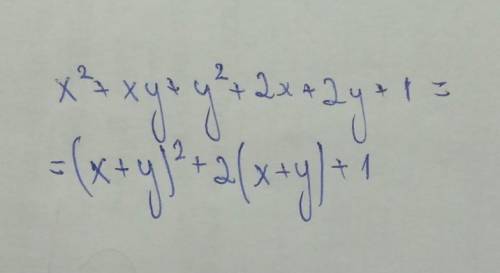 x² + xy + y² + 2x + 2y + 1 =
= (x + y)² + 2(x + y) + 1